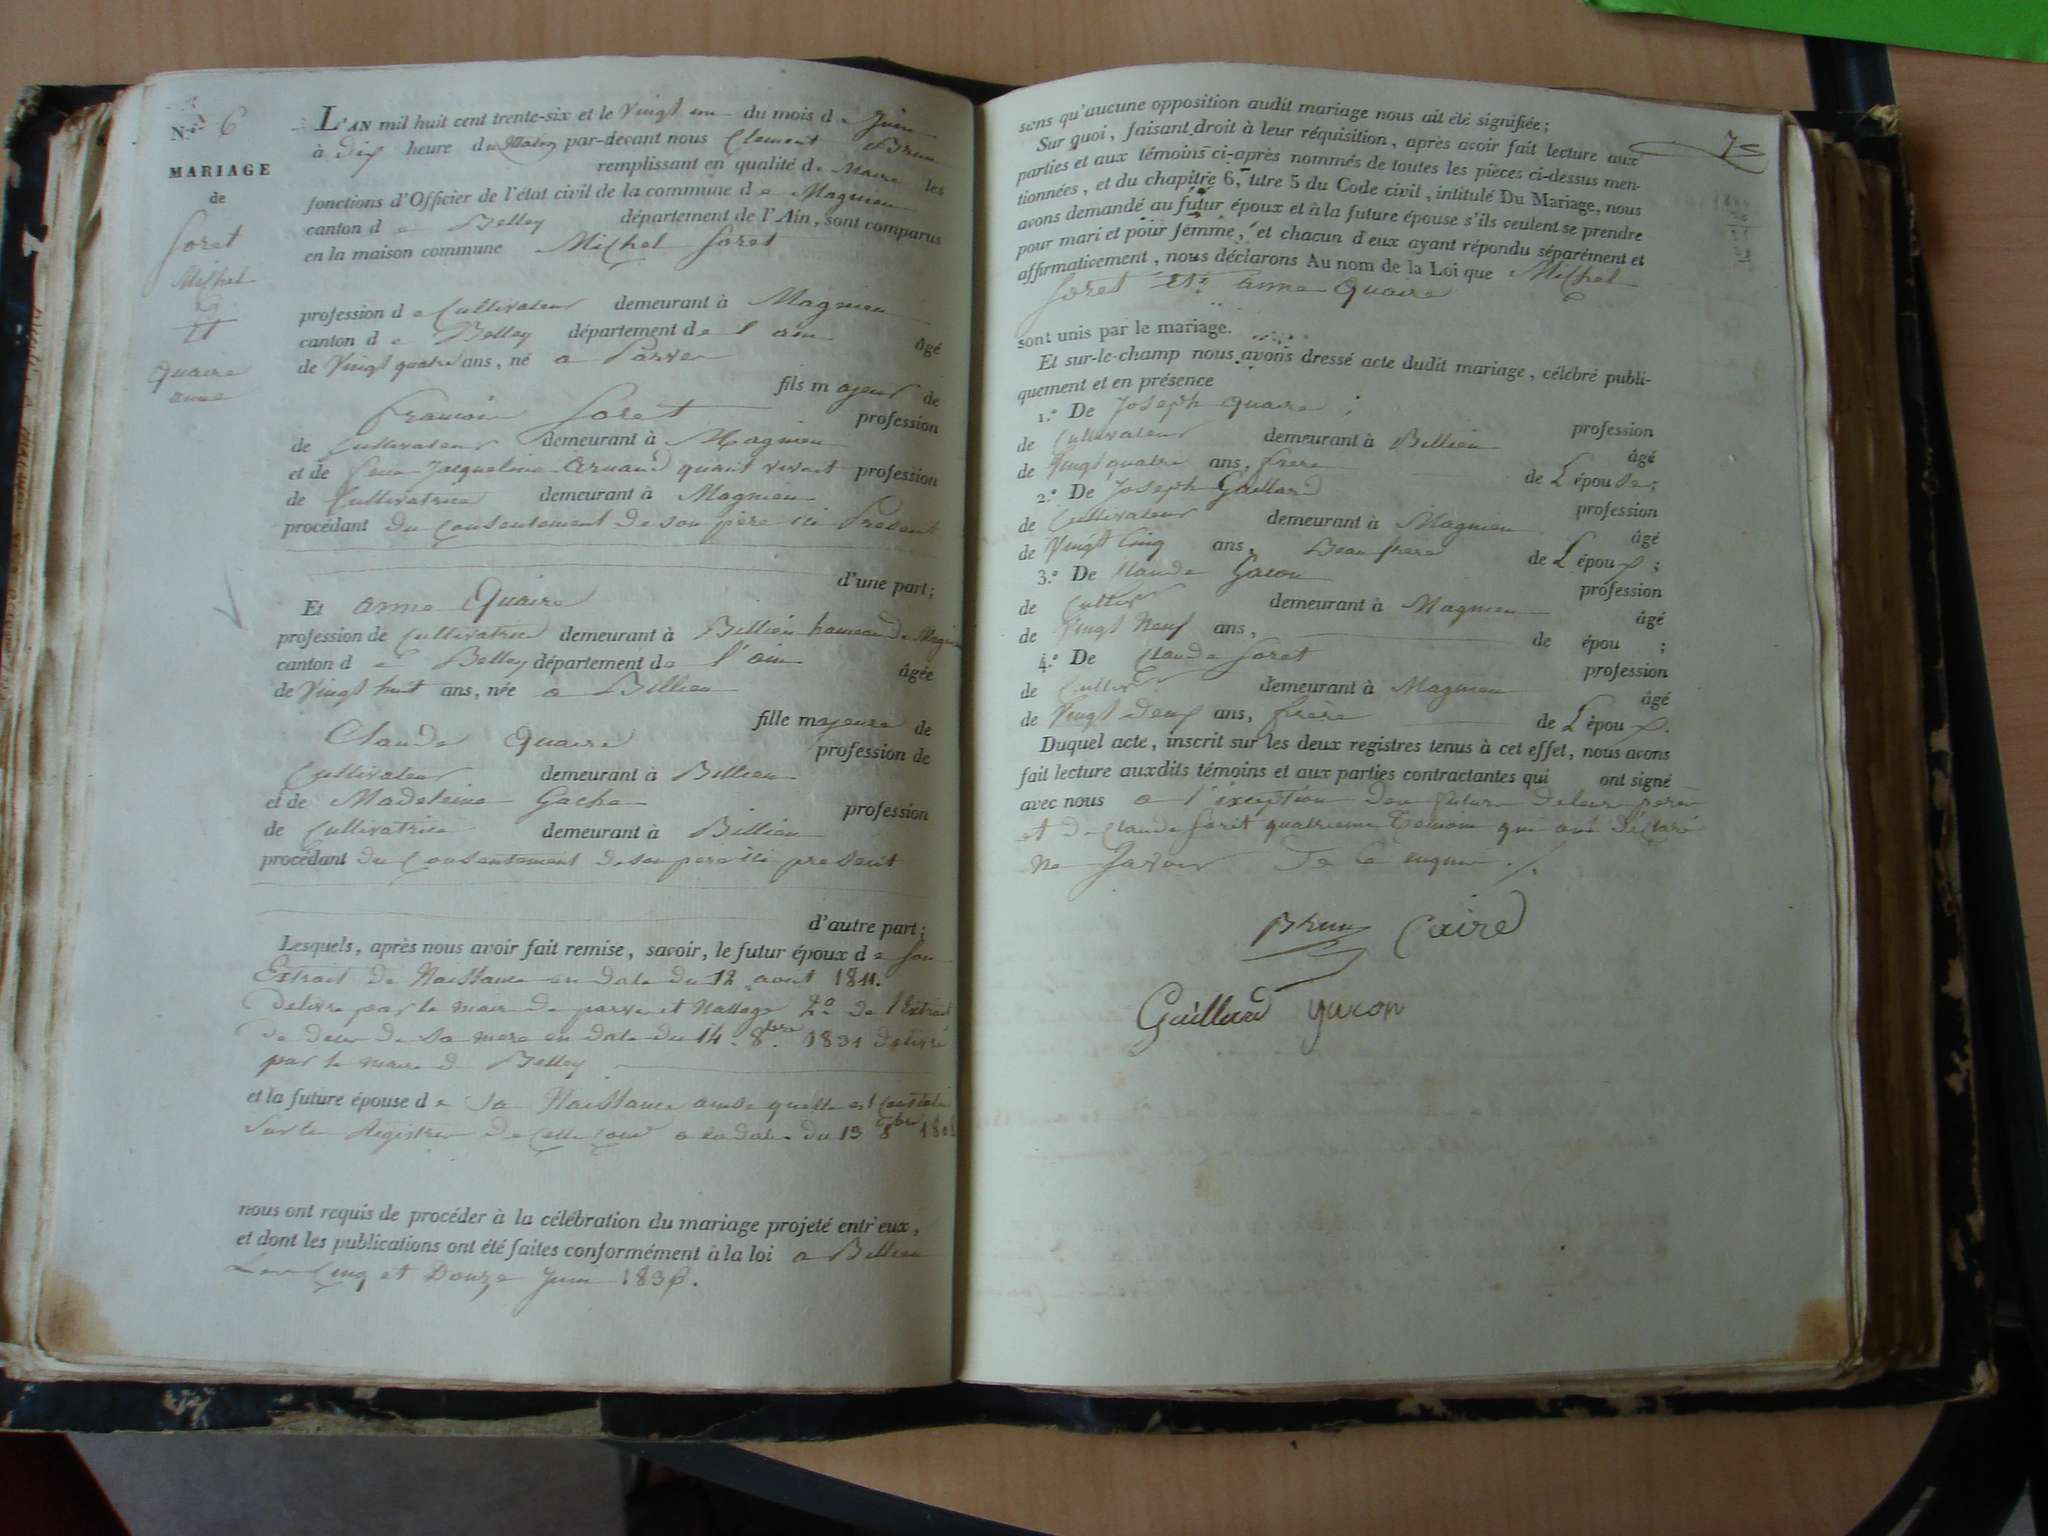 N.o 6
MARIAGE
de
Soret
Michel
Et
Quaire
anne
L'AN mil huit cent trente-six et le Vingt un du mois de Juin
à dix heure du Matin par-devant nous Clement Brun
remplissant en qualité de Maire les
fonctions d'Officier de l'état civil de la commune de Magnieu
canton de Belley département de l'Ain, sont comparus
en la maison commune Michel Soret
profession de Cultivateur demeurant à Magnieu
canton de Belley département de l'ain âgé
de Vingt quatre ans, né a Parves
fils majeur de
francois Soret profession
de Cultivateur demeurant à Magnieu
et de feue Jacqueline Arnaud quand vivait profession
de Cultivatrice demeurant à Magnieu
procédant du Consentement de son père ici Présent
d'une part;
Et anne Quaire
profession de Cultivatrice demeurant à Billieu hameau de Magnieu
canton de Belley département de l'ain âgée
de Vingt huit ans, née a Billieu
fille majeure de
Claude Quaire profession de
Cultivateur demeurant à Billieu
et de Madeleine Gache profession
de Cultivatrice demeurant à Billieu
procédant du Consentement de son pere ici present
d'autre part;
Lesquels, après nous avoir fait remise, savoir, le futur époux de son
Extrait de Naissance en date du 12 aout 1811.
Délivré par le maire de parves et Nattage 2.o de l'Extrait
de deces de sa mere en date du 14 8.bre 1831 délivré
par le maire de Belley
et la future épouse de sa Naissance ainsi quelle est Constatée
Sur les Registres de cette Come a la date du 13 8bre
nous ont requis de procéder à la célébration du mariage projeté entr'eux,
et dont les publications ont été faites conformément à la loi a Billieu
Les Cinq et Douze Juin 1836.
7
sans qu'aucune opposition audit mariage nous ait été signifiée;
Sur quoi, faisant droit à leur réquisition, après avoir fait lecture aux
parties et aux témoins ci-après nommés de toutes les pièces ci-dessus men-
tionnées, et du chapitre 6, titre 5 du Code civil, intitulé Du Mariage, nous
avons demandé au futur époux et à la future épouse s'ils veulent se prendre
pour mari et pour femme, et chacun d'eux ayant répondu séparément et
affirmativement, nous déclarons Au nom de la Loi que Michel
Soret Et anne Quaire
sont unis par le mariage.
Et sur-le-champ nous avons dressé acte dudit mariage, célébré publi-
quement et en présence
1.o De Joseph Quaire; profession
de Cultivateur demeurant à Billieu âgé
de Vingt quatre ans, frere de L'épouse;
2.o De Joseph Gaillard profession
de Cultivateur demeurant à Magnieu âgé
de Vingt Cinq ans, Beau frere de L'époux;
3.o De Claude Gacon profession
de Cultivr demeurant à Magnieu âgé
de Vingt Neuf ans, de épou ;
4.o De Claude Soret profession
de Cultivr demeurant à Magnieu âgé
de Vingt deux ans, frère de L'époux.
Duquel acte, inscrit sur les deux registres tenus à cet effet, nous avons
fait lecture auxdits témoins et aux parties contractantes qui ont signé
avec nous a l'exception des futurs de leurs peres
et de Claude Soret quatrieme Temoin qui ont déclaré
ne Savoir de ce enquis ./.
Brun Caire
Guillard gacon